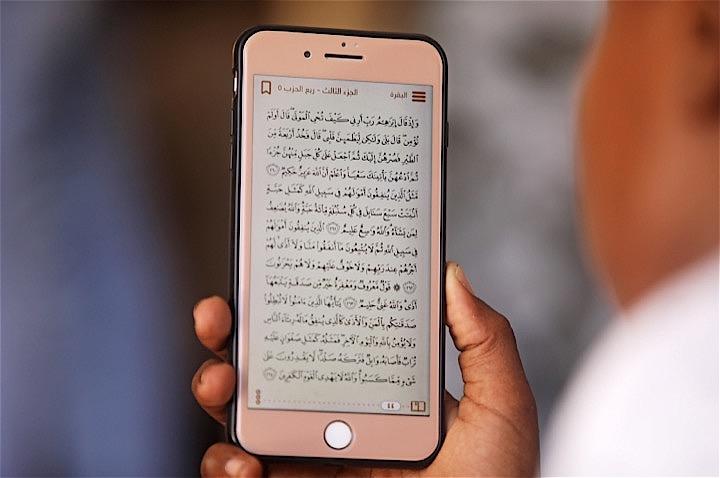 البقرة
الجزء الثالث - ربع الحزب ٥
وَإِذْ قَالَ إِبْرَاهِيمُ رَبِّ أَرِنِي كَيْفَ تُحْيِ الْمَوْتَىٰ ۖ قَالَ أَوَلَمْ
تُؤْمِن ۖ قَالَ بَلَىٰ وَلَٰكِن لِّيَطْمَئِنَّ قَلْبِي ۖ قَالَ فَخُذْ أَرْبَعَةً مِّنَ
الطَّيْرِ فَصُرْهُنَّ إِلَيْكَ ثُمَّ اجْعَلْ عَلَىٰ كُلِّ جَبَلٍ مِّنْهُنَّ جُزْءًا
ثُمَّ ادْعُهُنَّ يَأْتِينَكَ سَعْيًا ۚ وَاعْلَمْ أَنَّ اللَّهَ عَزِيزٌ حَكِيمٌ ٢٦٠
مَّثَلُ الَّذِينَ يُنفِقُونَ أَمْوَالَهُمْ فِي سَبِيلِ اللَّهِ كَمَثَلِ حَبَّةٍ
أَنبَتَتْ سَبْعَ سَنَابِلَ فِي كُلِّ سُنبُلَةٍ مِّائَةُ حَبَّةٍ ۗ وَاللَّهُ يُضَاعِفُ
لِمَن يَشَاءُ ۗ وَاللَّهُ وَاسِعٌ عَلِيمٌ ٢٦١ الَّذِينَ يُنفِقُونَ أَمْوَالَهُمْ
فِي سَبِيلِ اللَّهِ ثُمَّ لَا يُتْبِعُونَ مَا أَنفَقُوا مَنًّا وَلَا أَذًى ۙ لَّهُمْ
أَجْرُهُمْ عِندَ رَبِّهِمْ وَلَا خَوْفٌ عَلَيْهِمْ وَلَا هُمْ يَحْزَنُونَ
٢٦٢ ۞ قَوْلٌ مَّعْرُوفٌ وَمَغْفِرَةٌ خَيْرٌ مِّن صَدَقَةٍ يَتْبَعُهَا
أَذًى ۗ وَاللَّهُ غَنِيٌّ حَلِيمٌ ٢٦٣ يَا أَيُّهَا الَّذِينَ آمَنُوا لَا تُبْطِلُوا
صَدَقَاتِكُم بِالْمَنِّ وَالْأَذَىٰ كَالَّذِي يُنفِقُ مَالَهُ رِئَاءَ النَّاسِ
وَلَا يُؤْمِنُ بِاللَّهِ وَالْيَوْمِ الْآخِرِ ۖ فَمَثَلُهُ كَمَثَلِ صَفْوَانٍ عَلَيْهِ
تُرَابٌ فَأَصَابَهُ وَابِلٌ فَتَرَكَهُ صَلْدًا ۖ لَّا يَقْدِرُونَ عَلَىٰ
شَيْءٍ مِّمَّا كَسَبُوا ۗ وَاللَّهُ لَا يَهْدِي الْقَوْمَ الْكَافِرِينَ ٢٦٤
٤٤